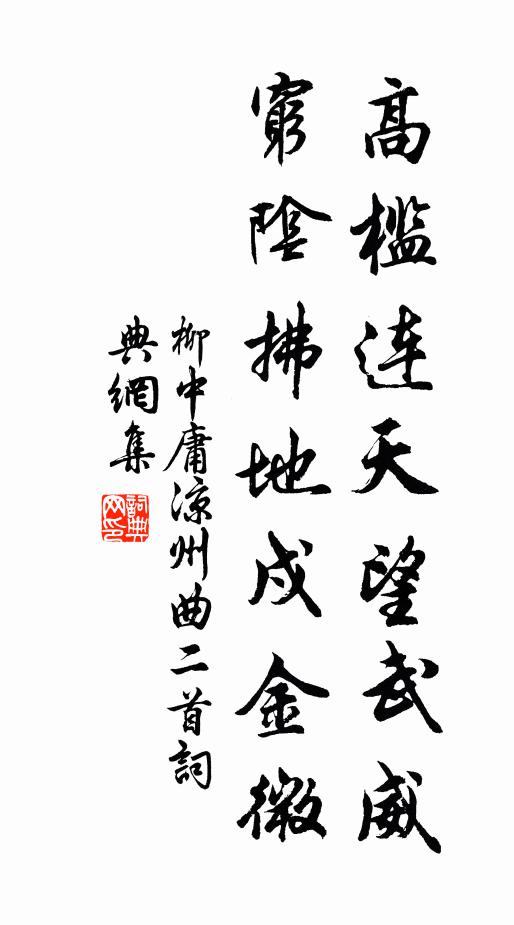 高檻連天望武威
窮陰拂地戍金微
柳中庸涼州曲二首詞
典網集
詞典網印